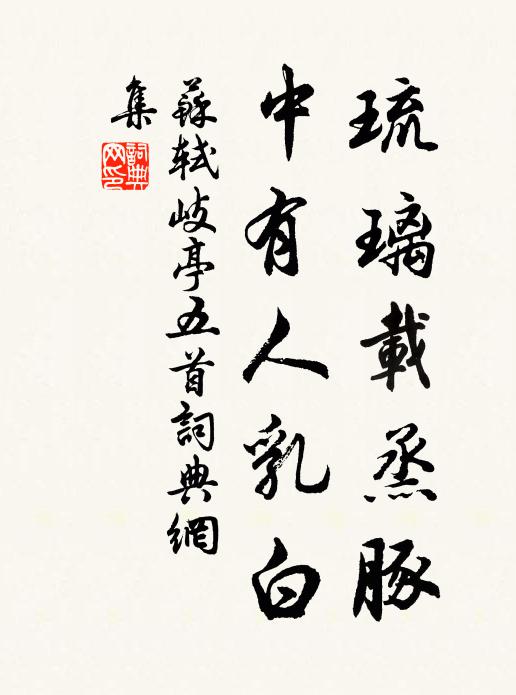 琉璃載烝豚
中有人乳白
蘇軾岐亭五首詞典網
集
詞典
网印